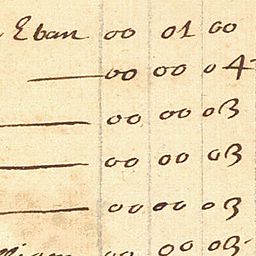 Eban 00 01 00
00 00 04
00 00 03
00 00 03
00 00 03
00 00 03